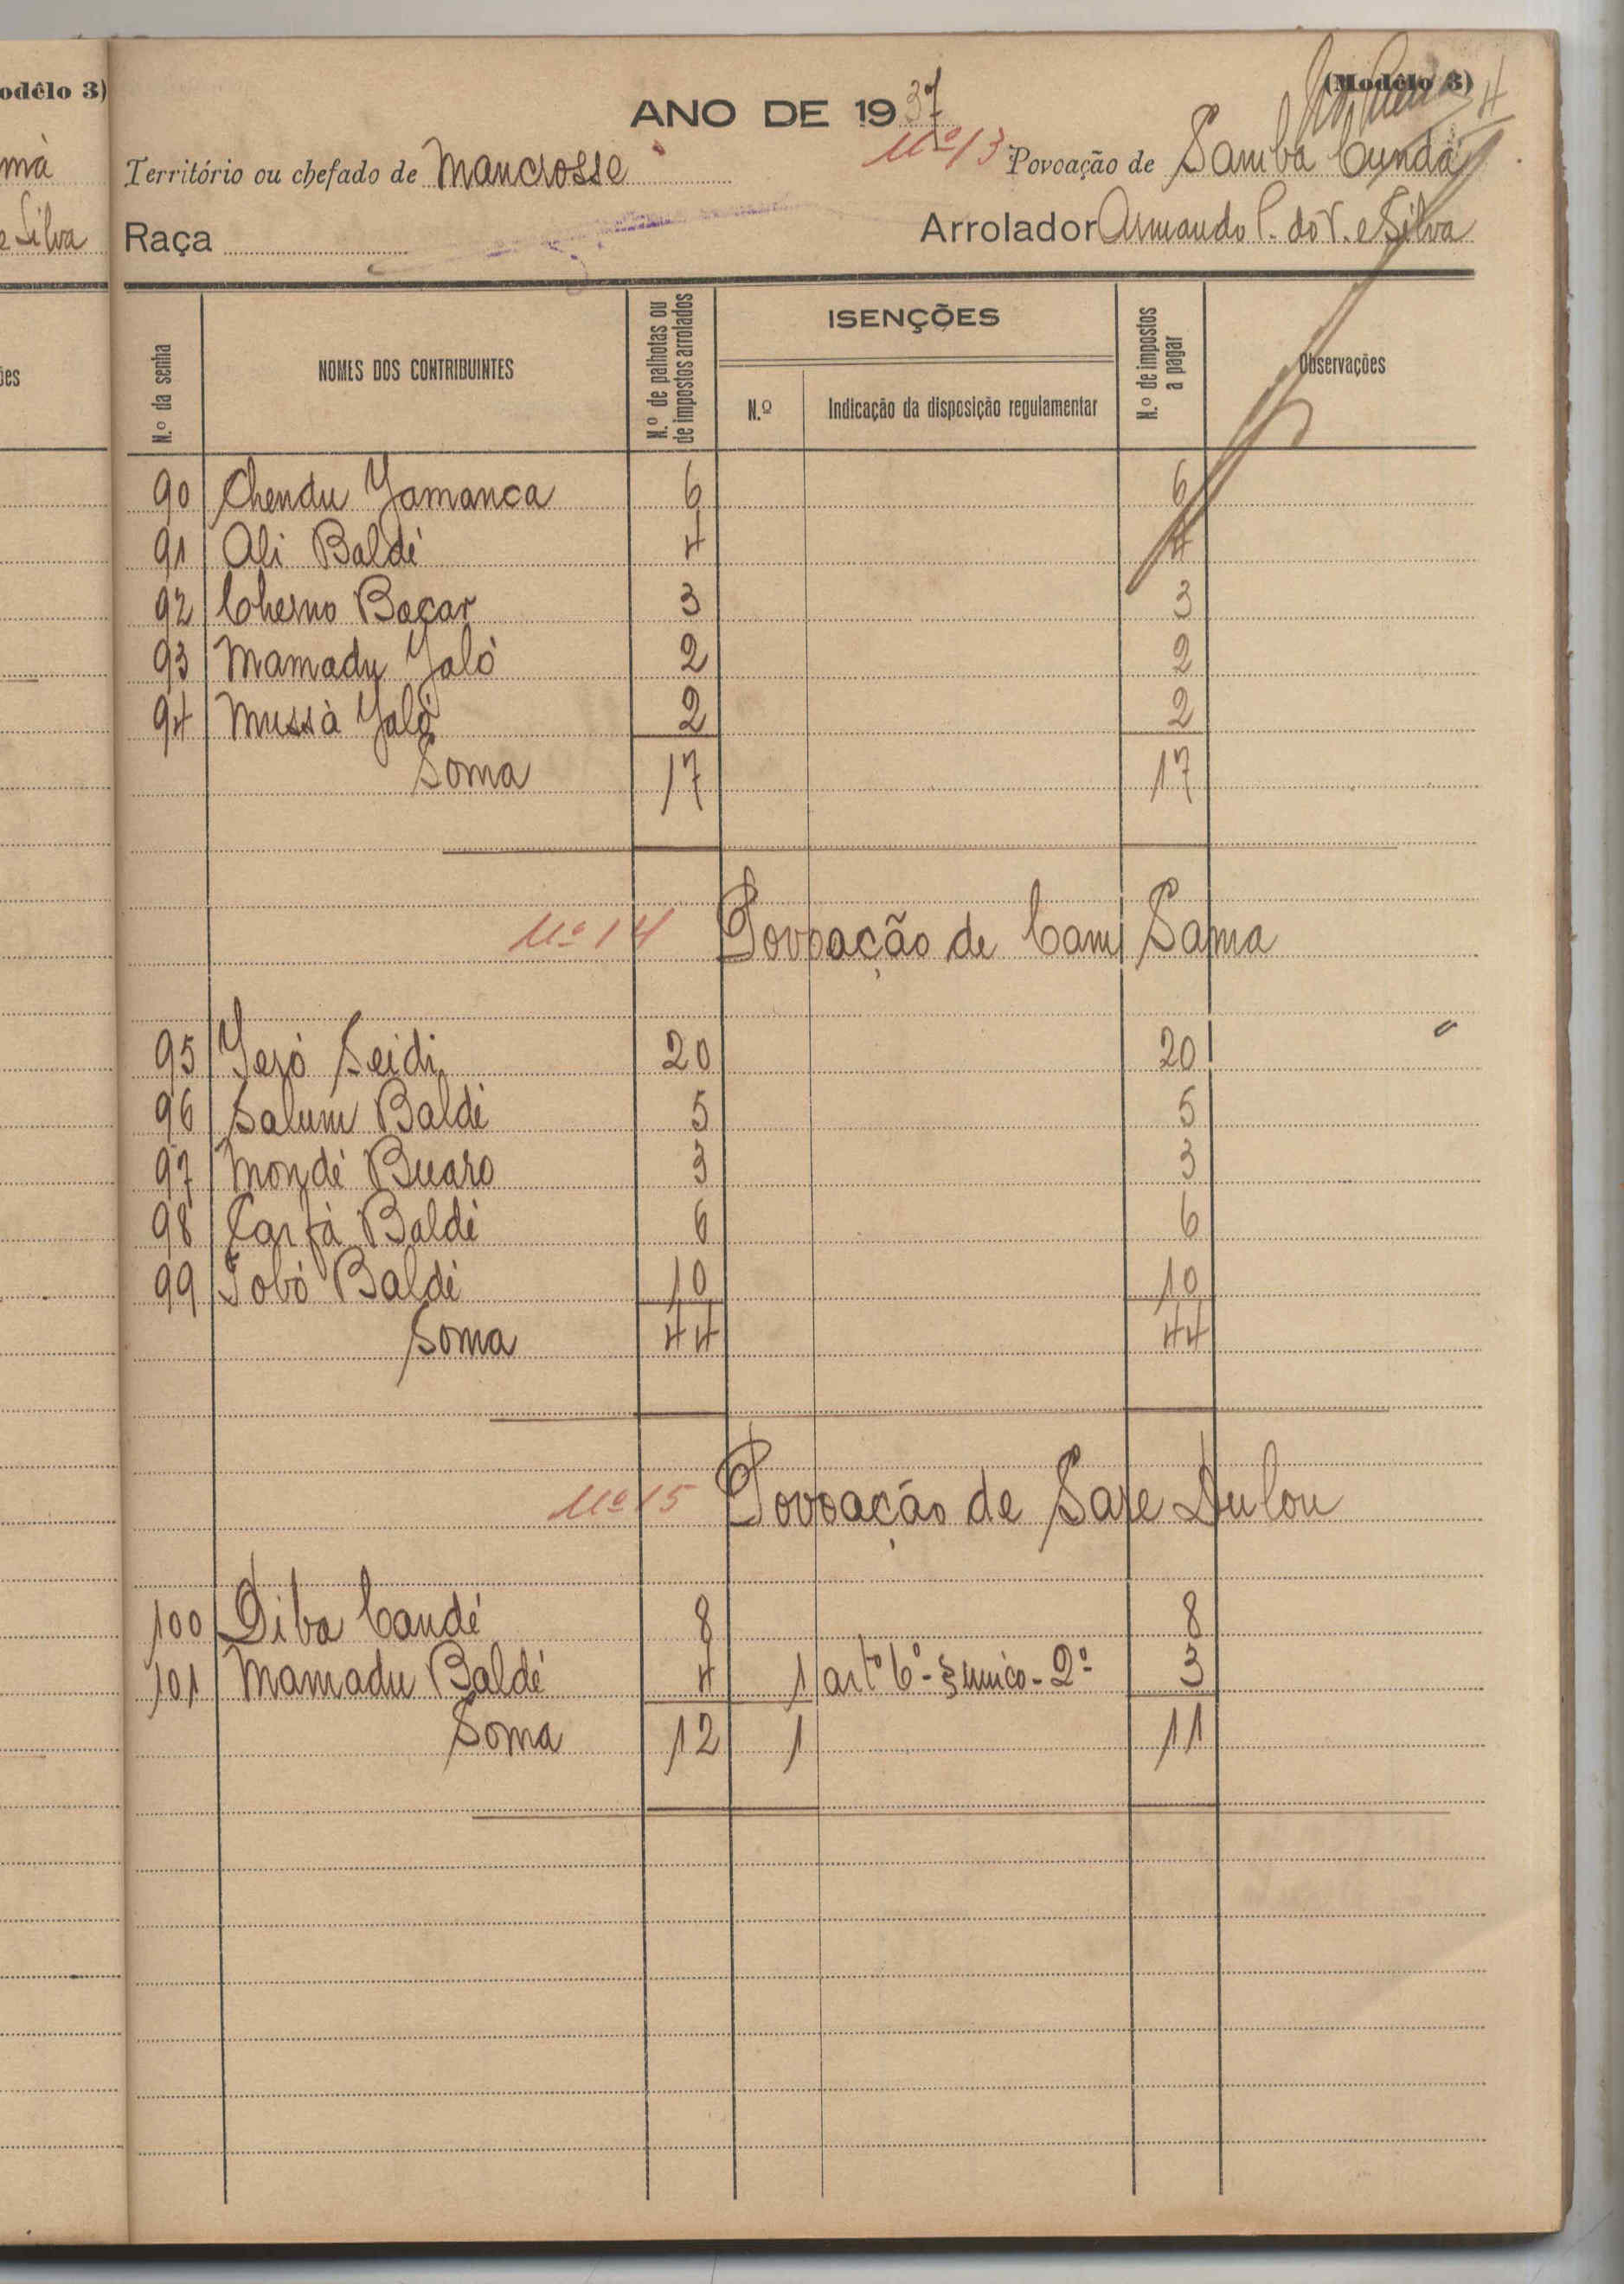 odêlo 3)
mà
e Silva
ões
(Modêlo 3)
4
ANO DE 1937
Território ou chefado de Mancrosse
Nº 13 Povoação de Samba Cunda
Raça
Arrolador Armando P. do V. e Silva
N.º da senha
NOMES DOS CONTRIBUINTES
N.º de palhotas ou de impostos arrolados
ISENÇÕES
N.º
Indicação da disposição regulamentar
N.º de impostos a pagar
Observações
90 Chendu Jamanca 6 6
91 Ali Baldé 4 4
92 Cherno Bacar 3 3
93 Mamadu Jaló 2 2
94 Mussà Jaló 2 2
Soma 17 17
Nº 14 Povoação de Cam Sama
95 Jeró Seidi 20 20
96 Salum Baldé 5 5
97 Mondé Buaro 3 3
98 Carfà Baldé 6 6
99 Tobó Baldé 10 10
Soma 44 44
Nº 15 Povoação de Sare Dulou
100 Diba Candé 8 8
101 Mamadu Baldé 4 1 artº 6º - § unico - 2º 3
Soma 12 1 11